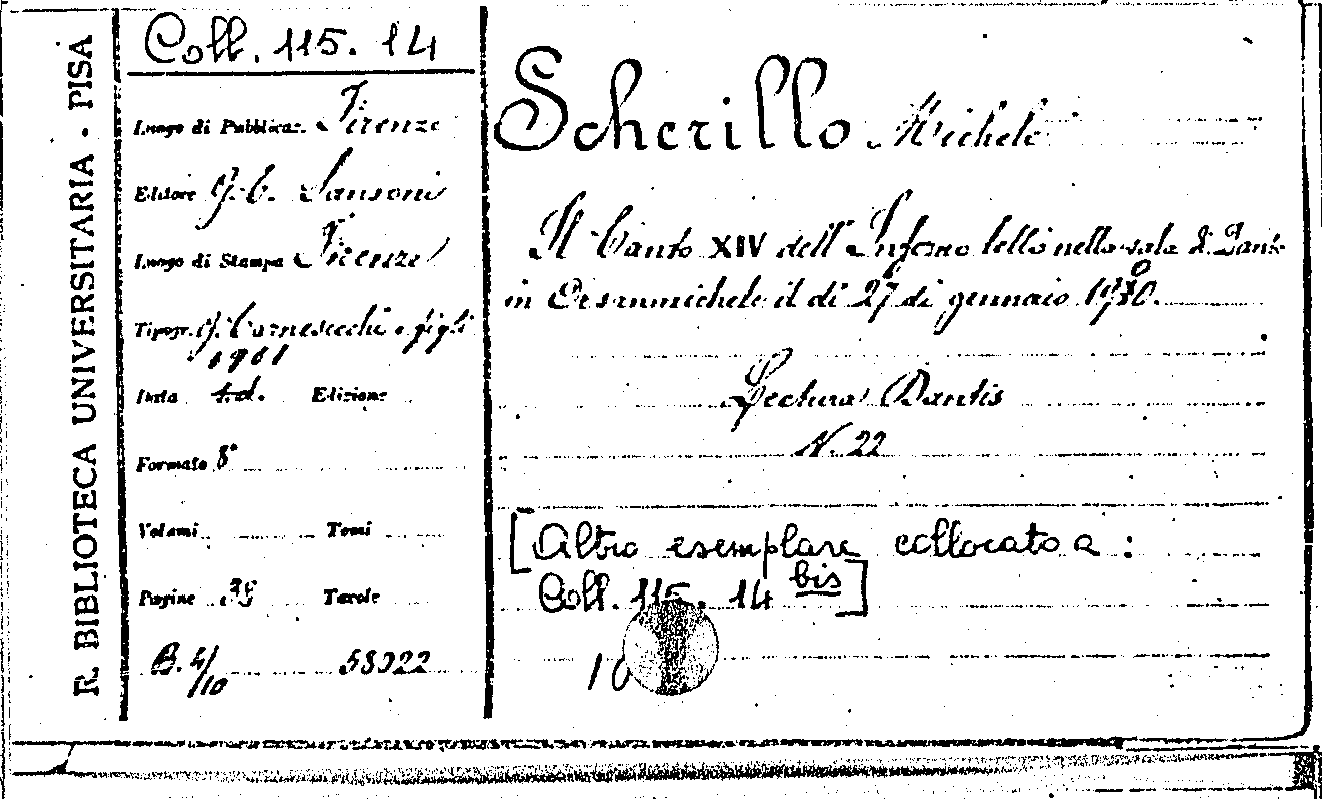 R. BIBLIOTECA UNIVERSITARIA - PISA
Coll. 115. 14
Luogo di Pubblicaz. Firenze
Editore G. C. Sansoni
Luogo di Stampa Firenze
Tipogr. G. Carnesecchi e figli
1901
Data s.d. Edizione
Formato 8°
Volumi Tomi
Pagine Tavole
B. 4/10 58022
Scherillo Michele
Il Canto XIV dell' Inferno letto nella sala di Dante
in Orsanmichele il dì 27 di gennaio 1900.
Lectura Dantis
N. 22
[Altro esemplare collocato a :
Coll. 115. 14 bis]